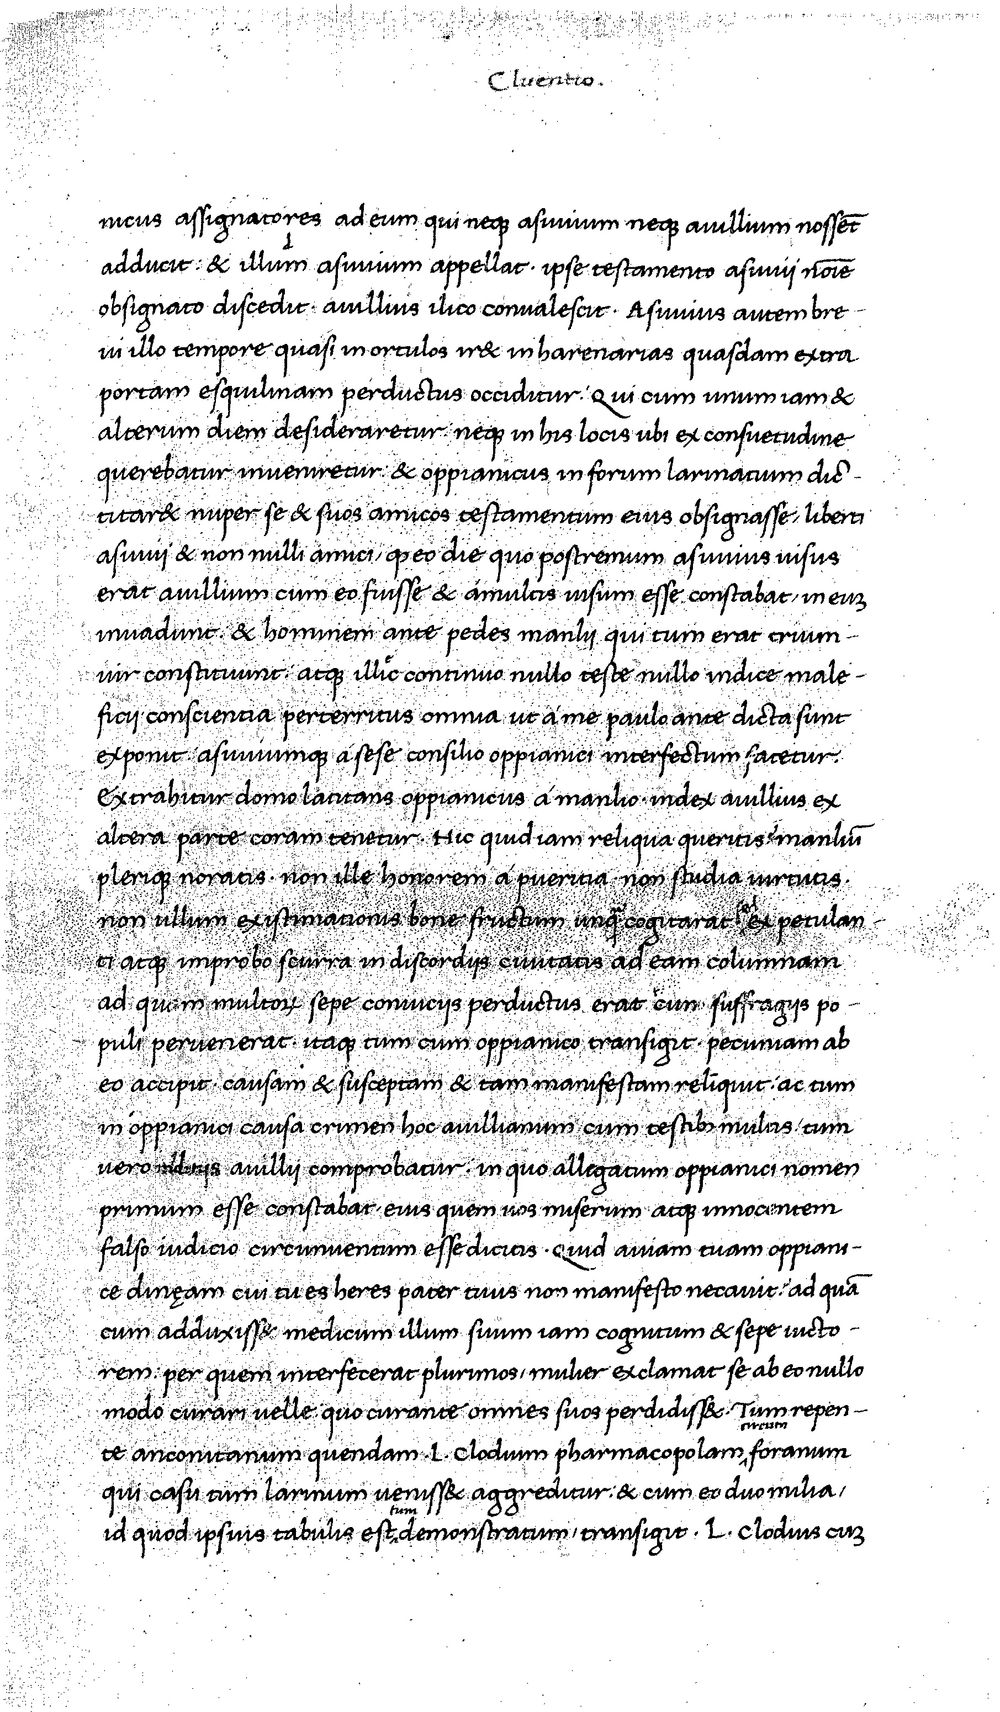 Cluentio.
nicus assignatores ad eum qui neqꝫ asuuium neqꝫ auillium nossēt
adducit: & illum asuuium appellat. ipse testamento asuuij noīe
obsignato discedit. auillius ilico conualescit. Asuuius autem bre-
ui illo tempore quasi in ortulos ir& in harenarias quasdam extra
portam esquilinam perductus occiditur. Qui cum unum iam &
alterum diem desideraretur: neqꝫ in his locis ubi ex consuetudine
querebatur inueniretur: & oppianicus in forum larinatium dic-
titar& nuper se & suos amicos testamentum eius obsignasse, liberti
asuuij & non nulli amici, ꝙ eo die quo postremum asuuius uisus
erat auillium cum eo fuisse & á multis uisum esse constabat, in euꝫ
inuadunt: & hominem ante pedes manlij qui tum erat trium-
uir constituunt: atqꝫ illic continuo nullo teste nullo indice male-
ficij conscientia perterritus omnia ut á me paulo ante dicta sunt
exponit asuuiumqꝫ a sese consilio oppianici interfectum fatetur.
Extrahitur domo latitans oppianicus á manlio. index auillius ex
altera parte coram tenetur. Hic quid iam reliqua queritis? manliū
pleriqꝫ noratis. non ille honorem á pueritia non studia uirtutis.
non ullum existimationis bone fructum unq̄ cogitarat: ex petulan-
ti atqꝫ improbo scurra in discordijs ciuitatis ad eam columnam
ad quam multoꝝ sepe conuicijs perductus erat cum suffragijs po-
puli peruenerat. itaqꝫ tum cum oppianico transigit. pecuniam ab
eo accipit. causam & susceptam & tam manifestam reliquit. ac tum
in oppianici causa crimen hoc auillianum cum testibꝫ multis, tum
uero auillij comprobatur. in quo allegatum oppianici nomen
primum esse constabat. eius quem uos miserum atqꝫ innocentem
falso iudicio circunuentum esse dicitis. Quid auiam tuam oppiani-
ce dineam cui tu es heres pater tuus non manifesto necauit? ad quā
cum adduxiss& medicum illum suum iam cognitum & sepe uicto-
rem: per quem interfecerat plurimos, mulier exclamat se ab eo nullo
modo curari uelle quo curante omnes suos perdidiss&. Tum repen-
te anconitanum quendam .L. Clodium pharmacopolam circum foranum
qui casu tum larinum ueniss& aggreditur. & cum eo duo milia,
id quod ipsius tabulis est tum demonstratum, transigit. L. Clodius cuꝫ